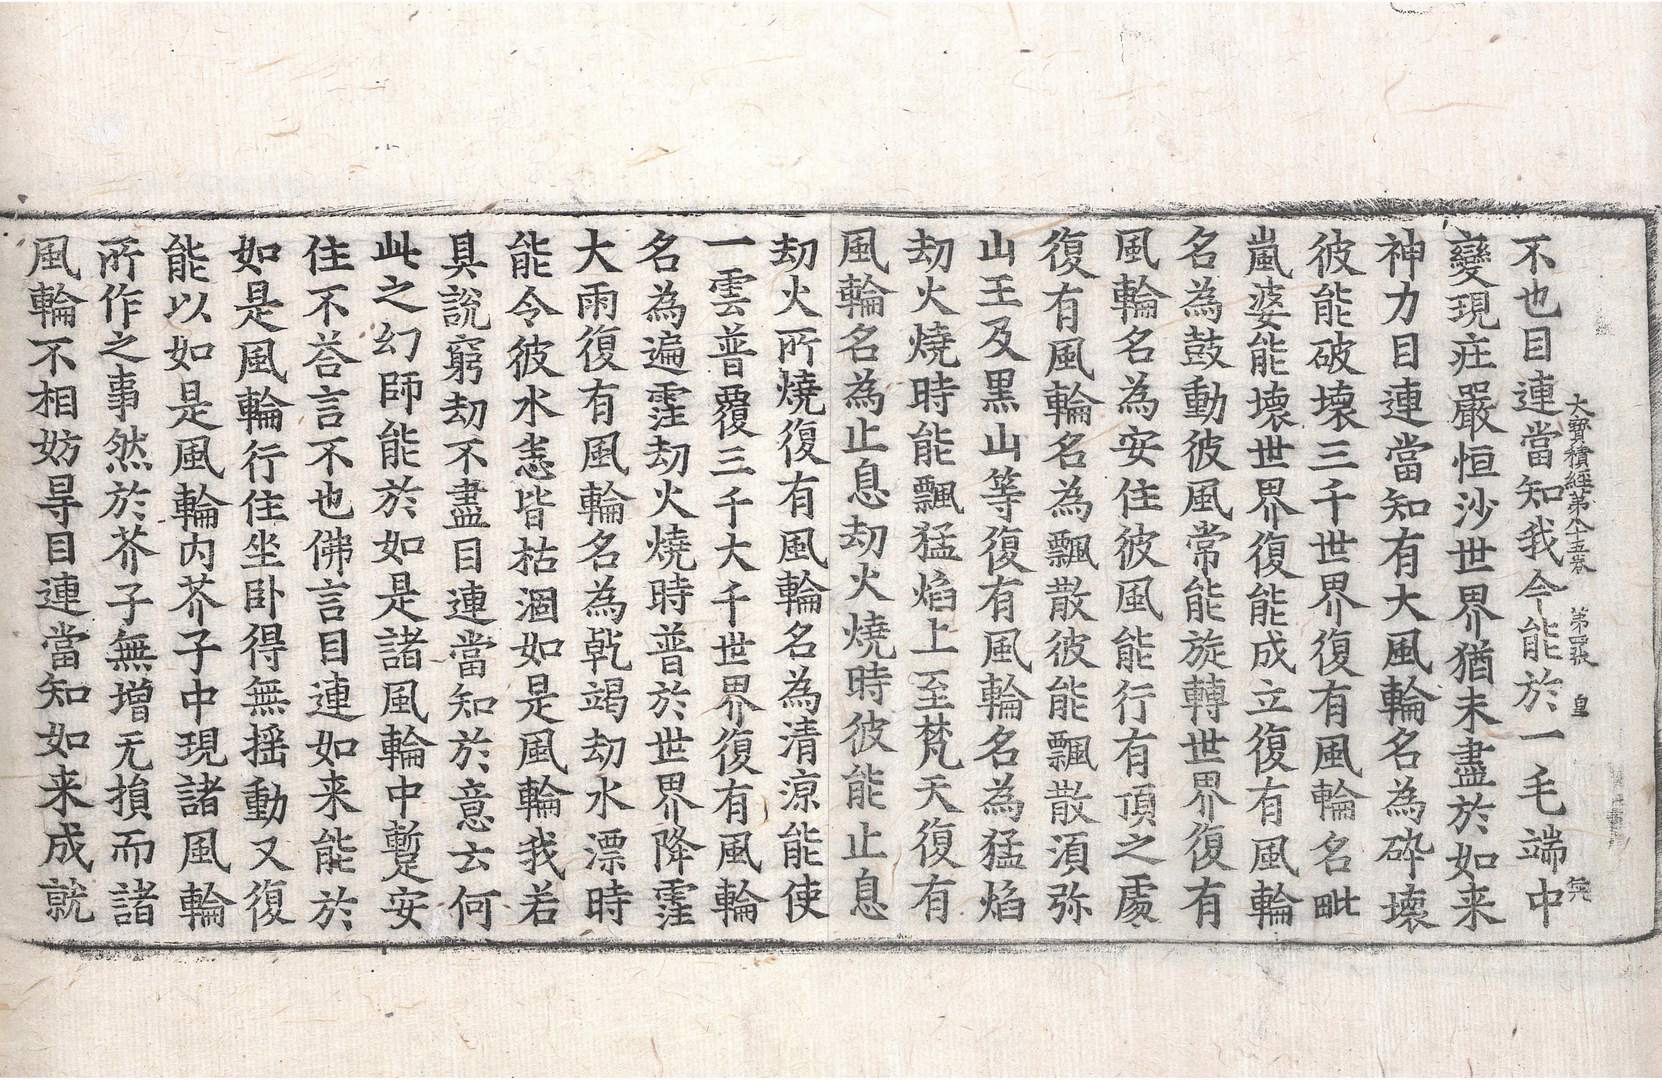 大寶積經第八十五卷 第四張 皇
不也目連當知我今能於一毛端中
變現庄嚴恒沙世界猶未盡於如来
神力目連當知有大風輪名為碎壞
彼能破壞三千世界復有風輪名毗
嵐婆能壞世界復能成立復有風輪
名為鼓動彼風常能旋轉世界復有
風輪名為安住彼風能行有頂之處
復有風輪名為飄散彼能飄散須弥
山王及黒山等復有風輪名為猛焰
劫火燒時能飄猛焰上至梵天復有
風輪名為止息劫火燒時彼能止息
劫火所燒復有風輪名為清涼能使
一雲普覆三千大千世界復有風輪
名為遍霔劫火燒時普於世界降霔
大雨復有風輪名為乹竭劫水漂時
能令彼水悉皆枯涸如是風輪我若
具說窮劫不盡目連當知於意云何
此之幻師能於如是諸風輪中蹔安
住不荅言不也佛言目連如来能於
如是風輪行住坐卧得無揺動又復
能以如是風輪内芥子中現諸風輪
所作之事然於芥子無增无損而諸
風輪不相妨㝵目連當知如来成就